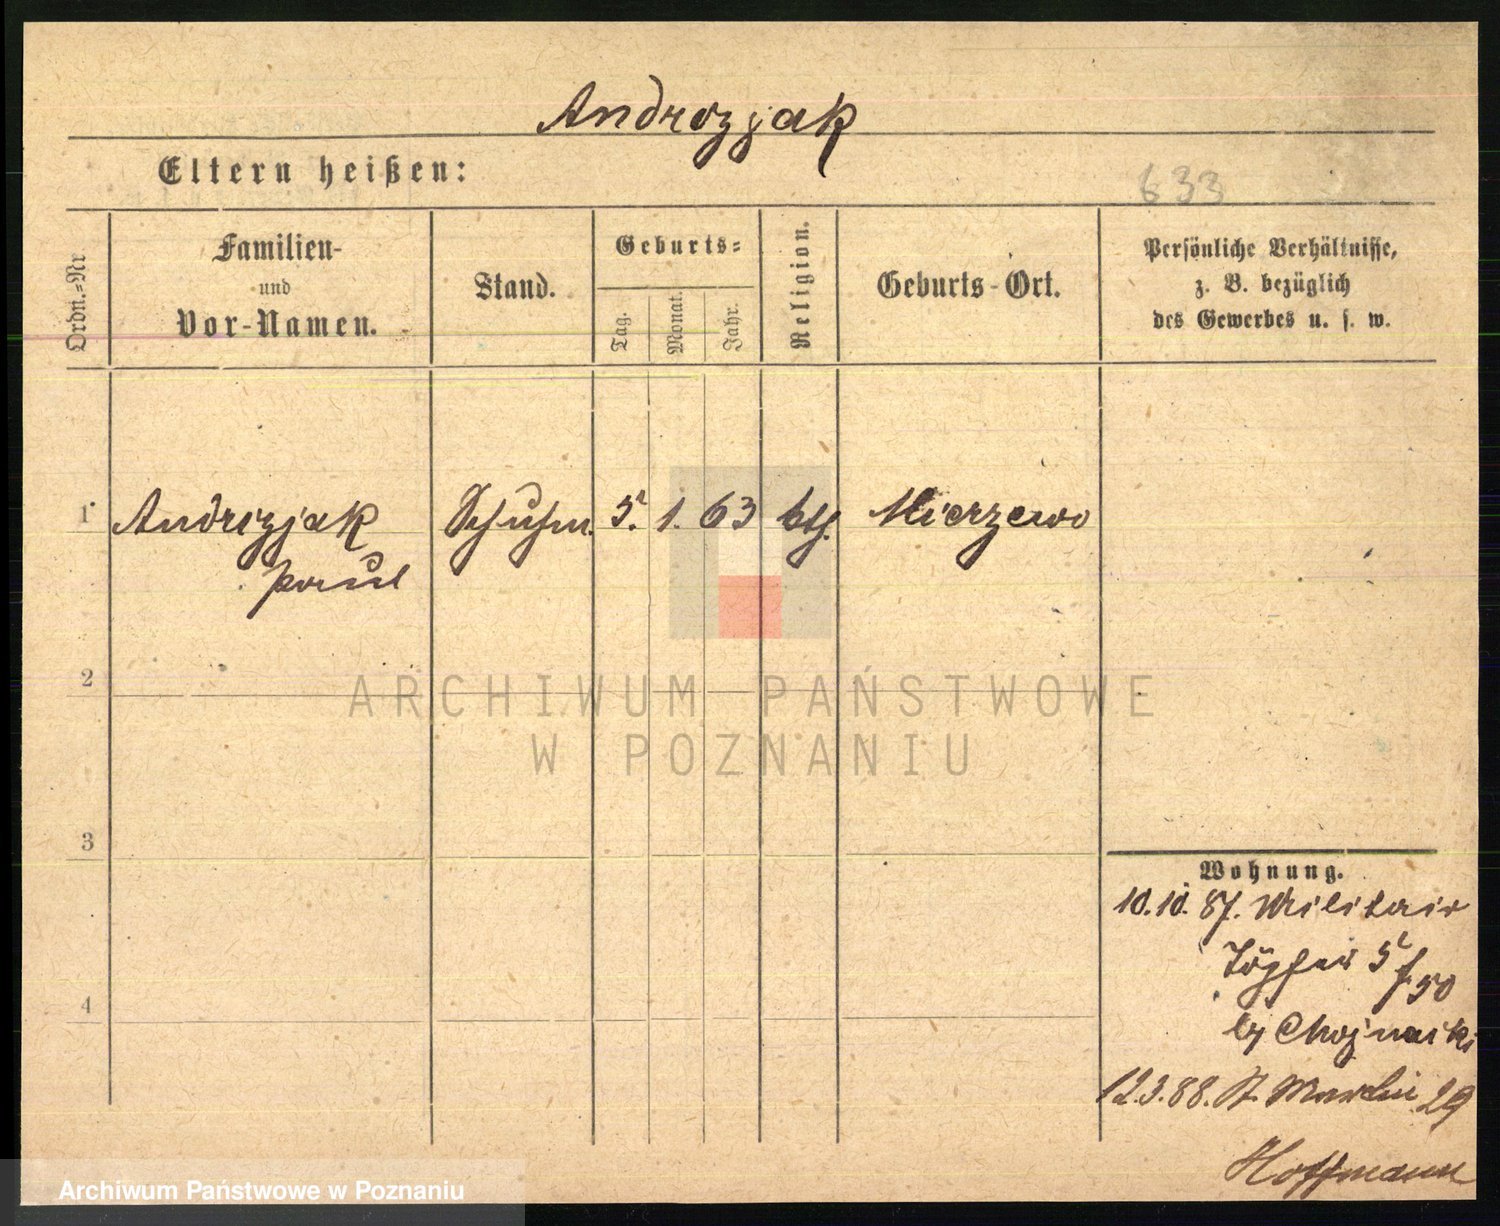 Andrczjak
Eltern heißen:
633
Ordn.=Nr
Familien-
und
Vor-Namen.
Stand.
Geburts=
Tag.
Monat.
Jahr.
Religion.
Geburts-Ort.
Persönliche Verhältnisse,
z. B. bezüglich
des Gewerbes u. s. w.
1 Andrczjak Schuhm. 5. 1. 63 kth. Mierzewo
Paul
2
ARCHIWUM PAŃSTWOWE
W POZNANIU
3
Wohnung.
10.10.87. Militair
5/50
by Chojnacki
4
12.3.88. St. Martin 29
Hoffmann
Archiwum Państwowe w Poznaniu